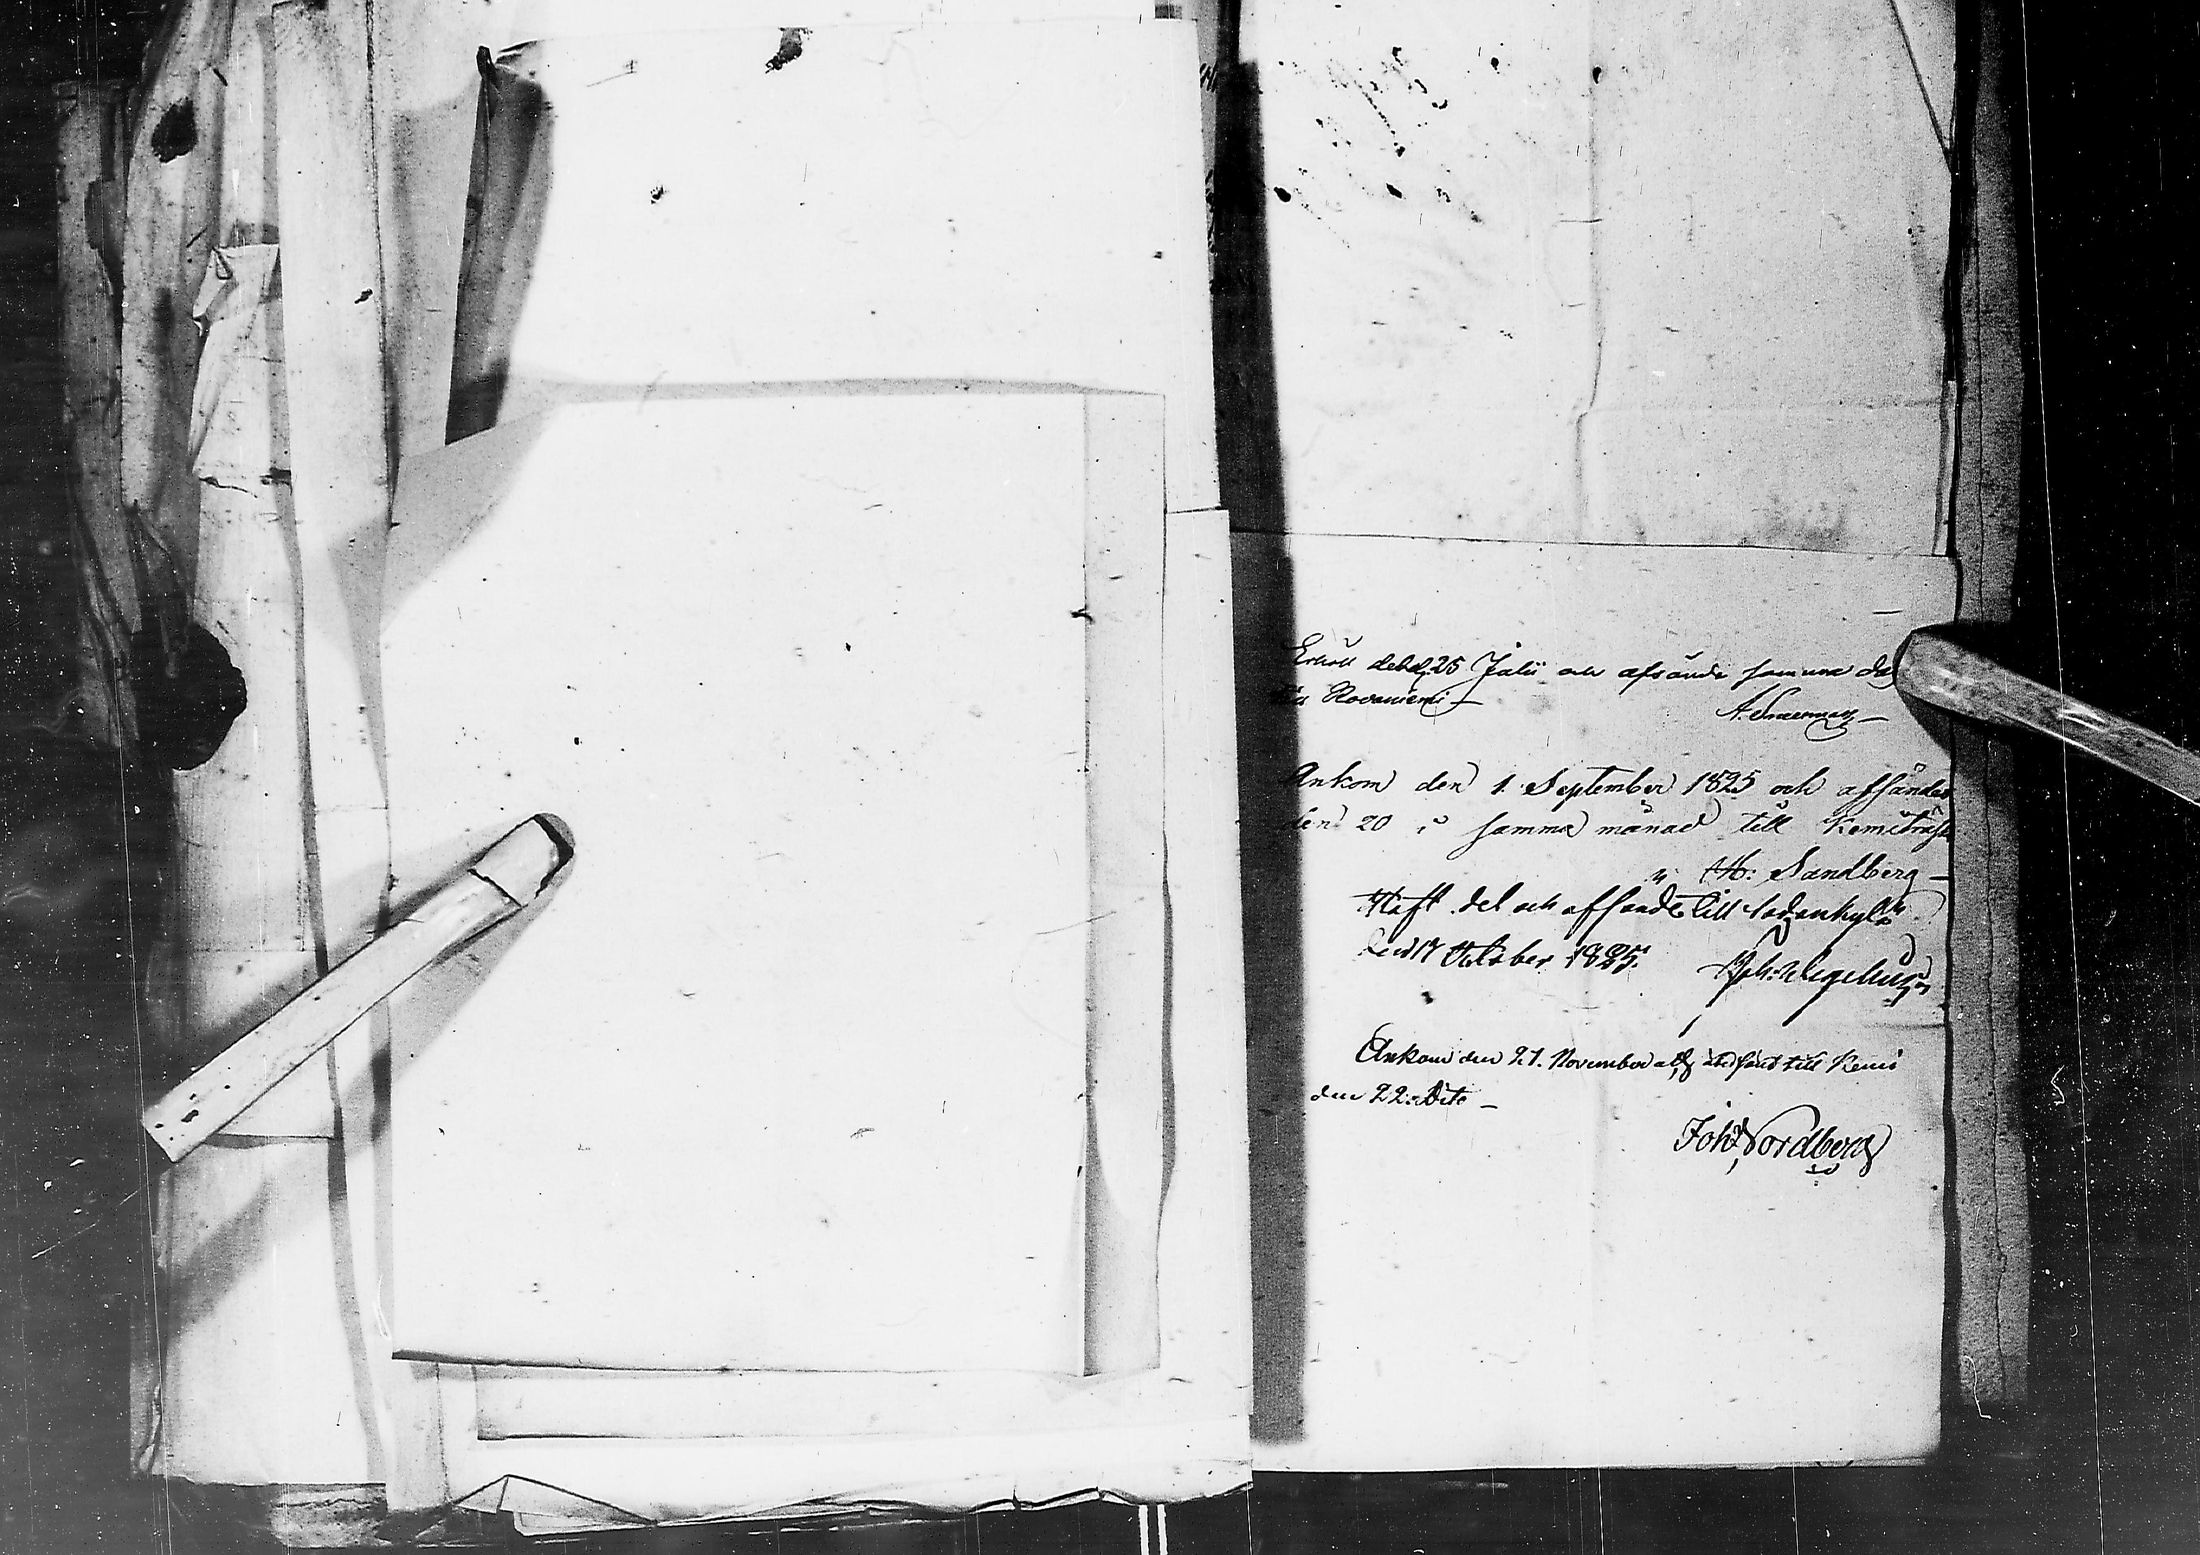 Erhöll det d. 25 Julii och afsände samma dag
till Rovaniemi
Ankom den 1. September 1825 och affändes
den 20 i samma månad till Kemiträsk
H: Sandberg
Haft det och affände till Sodankylä
den 17 October 1825.
Ankom den 21. November och afsänd till Kemi
den 22: Dito
Joh: Nordberg